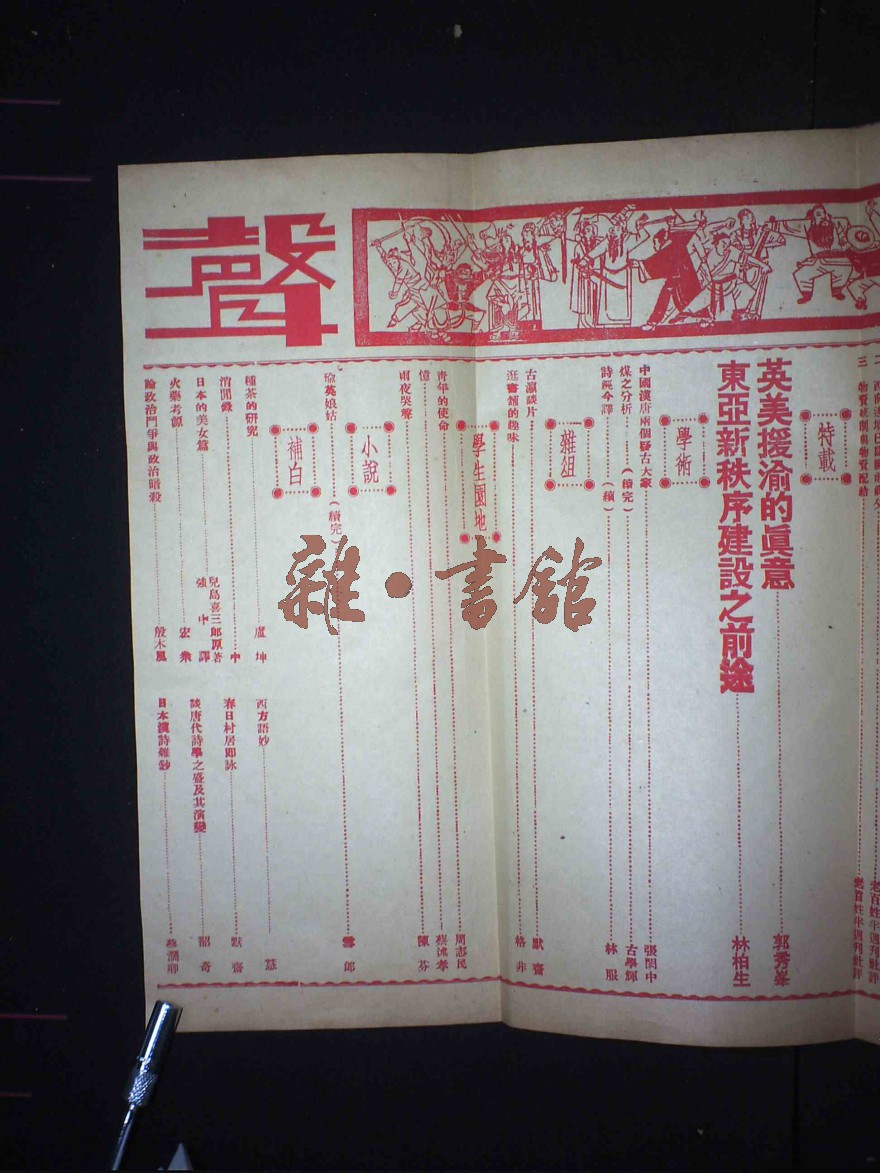 聲
三 物資統制與物資配給 老百姓半週刊社評
特載
英美援渝的眞意 郭秀峯
東亞新秩序建設之前途 林柏生
學術
中國漢唐兩個疑古大家 張閎中
煤之分析(續完) 古學輝
詩經今譯(續) 林服
雜組
古瀛談片 默齋
逛書舖的趣味 格非
學生園地
青年的使命 周志民
憶 蔡沛孝
雨夜哭聲 陳芬
小說
瑜英娘姑(續完) 雪郎
補白
種茶的研究 盧坤
清閒錄 中
日本的美女篇 兒島喜三郎原著 強中譯
火藥考源 宏衆
論政治鬥爭與政治暗殺 殷木風
西方語妙
春日村居即詠 默齋
談唐代詩學之盛及其演變 韶奇
日本漢詩雜鈔 蔡潤卿
雜·書館